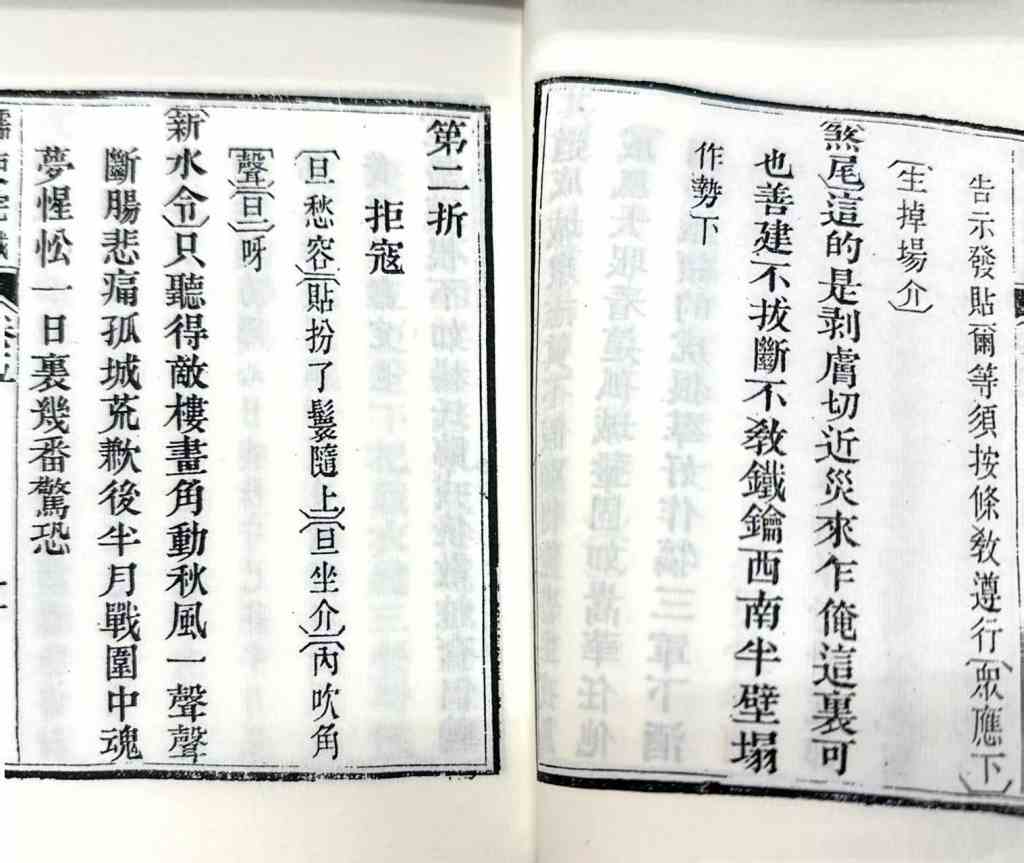 告示發貼爾等須按條敎遵行〔衆應下〕
〔生掉場介〕
〔煞尾〕這的是剥膚切近災來乍俺這裏可
也善建不拔斷不敎鐵鑰西南半壁塌
作勢下
第二折
拒寇
〔旦愁容〕〔貼扮了鬟隨上〕〔旦坐介〕〔內吹角
聲〕〔旦〕呀
〔新水令〕只聽得敵樓畫角動秋風一聲聲
斷腸悲痛孤城荒歉後半月戰圍中魂
夢惺忪一日裏幾番驚恐